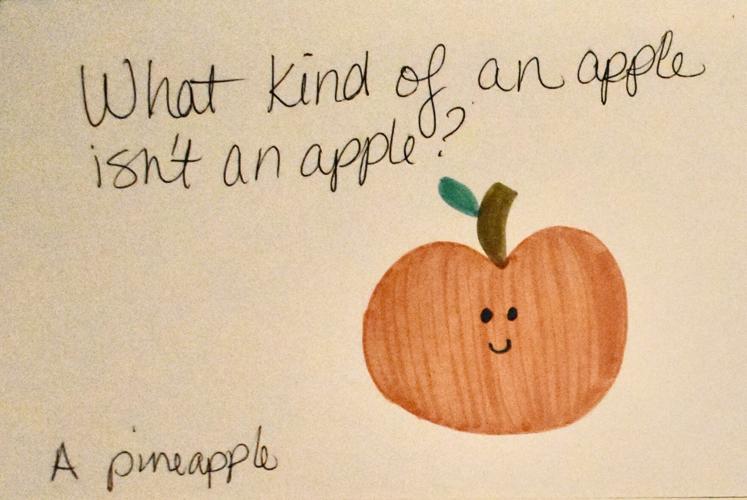 What kind of an apple
isn't an apple?
A pineapple